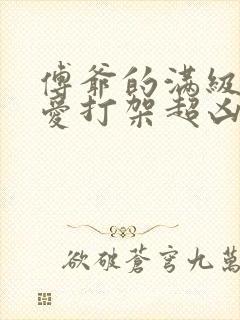 傅爺的滿級
愛打架超凶
欲破蒼穹九萬